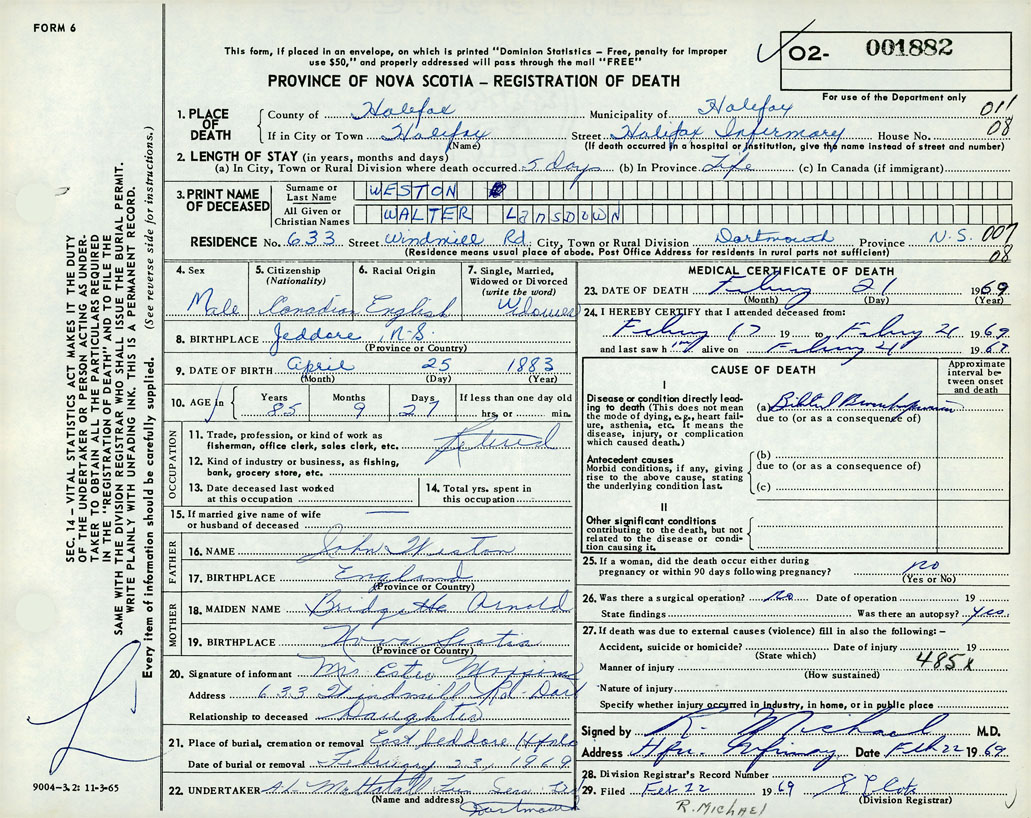 FORM 6
This form, if placed in an envelope, on which is printed "Dominion Statistics – Free, penalty for improper
use $50," and properly addressed will pass through the mail "FREE"
PROVINCE OF NOVA SCOTIA – REGISTRATION OF DEATH
O2- 001882
For use of the Department only
1. PLACE OF DEATH
County of Halifax Municipality of Halifax 011
If in City or Town Halifax Street Halifax Infirmary House No. 08
(Name) (If death occurred in a hospital or institution, give the name instead of street and number)
2. LENGTH OF STAY (in years, months and days)
(a) In City, Town or Rural Division where death occurred 5 days (b) In Province Life (c) In Canada (if immigrant)
3. PRINT NAME OF DECEASED
Surname or Last Name WESTON
All Given or Christian Names WALTER LANSDOWN
RESIDENCE No. 633 Street Windmill Rd. City, Town or Rural Division Dartmouth Province N.S. 007
(Residence means usual place of abode. Post Office Address for residents in rural parts not sufficient) 08
4. Sex
Male
5. Citizenship
(Nationality)
Canadian
6. Racial Origin
English
7. Single, Married,
Widowed or Divorced
(write the word)
Widower
8. BIRTHPLACE Jeddore, N.S.
(Province or Country)
9. DATE OF BIRTH April 25 1883
(Month) (Day) (Year)
10. AGE in
Years Months Days If less than one day old
85 9 27 hrs. or min.
OCCUPATION
11. Trade, profession, or kind of work as
fisherman, office clerk, sales clerk, etc. Retired
12. Kind of industry or business, as fishing,
bank, grocery store, etc.
13. Date deceased last worked
at this occupation
14. Total yrs. spent in
this occupation
15. If married give name of wife
or husband of deceased
FATHER
16. NAME John Weston
17. BIRTHPLACE England
(Province or Country)
MOTHER
18. MAIDEN NAME Bridgette Arnold
19. BIRTHPLACE Nova Scotia
(Province or Country)
20. Signature of informant Mrs
Address 633 Windmill Rd - Dart
Relationship to deceased Daughter
21. Place of burial, cremation or removal East Jeddore Hfx Co
Date of burial or removal February 23, 1969
22. UNDERTAKER A.L. Mattatall Fun Serv. Ltd
(Name and address) Dartmouth
MEDICAL CERTIFICATE OF DEATH
23. DATE OF DEATH 21 1969
(Month) (Day) (Year)
24. I HEREBY CERTIFY that I attended deceased from:
17 19 to 21 1969
and last saw him alive on 21 1969
CAUSE OF DEATH
Approximate
interval be-
tween onset
and death
I
Disease or condition directly lead-
ing to death (This does not mean
the mode of dying, e.g., heart fail-
ure, asthenia, etc. It means the
disease, injury, or complication
which caused death.)
(a) Bilateral Bronchopneumonia
due to (or as a consequence of)
Antecedent causes
Morbid conditions, if any, giving
rise to the above cause, stating
the underlying condition last.
(b)
due to (or as a consequence of)
(c)
II
Other significant conditions
contributing to the death, but not
related to the disease or condi-
tion causing it.
25. If a woman, did the death occur either during
pregnancy or within 90 days following pregnancy? no
(Yes or No)
26. Was there a surgical operation? No Date of operation 19
State findings Was there an autopsy? yes
27. If death was due to external causes (violence) fill in also the following: –
Accident, suicide or homicide? Date of injury 19
(State which)
Manner of injury 485X
(How sustained)
Nature of injury
Specify whether injury occurred in industry, in home, or in public place
Signed by R. Michael M.D.
Address Hfx. Infirmary Date Feb 22 1969
28. Division Registrar's Record Number
29. Filed Feb 22 1969
(Division Registrar)
R. MICHAEL
9004-3.2: 11-3-65
SEC. 14 – VITAL STATISTICS ACT MAKES IT THE DUTY
OF THE UNDERTAKER OR PERSON ACTING AS UNDER-
TAKER TO OBTAIN ALL THE PARTICULARS REQUIRED
IN THE "REGISTRATION OF DEATH" AND TO FILE THE
SAME WITH THE DIVISION REGISTRAR WHO SHALL ISSUE THE BURIAL PERMIT.
WRITE PLAINLY WITH UNFADING INK. THIS IS A PERMANENT RECORD.
Every item of information should be carefully supplied. (See reverse side for instructions.)